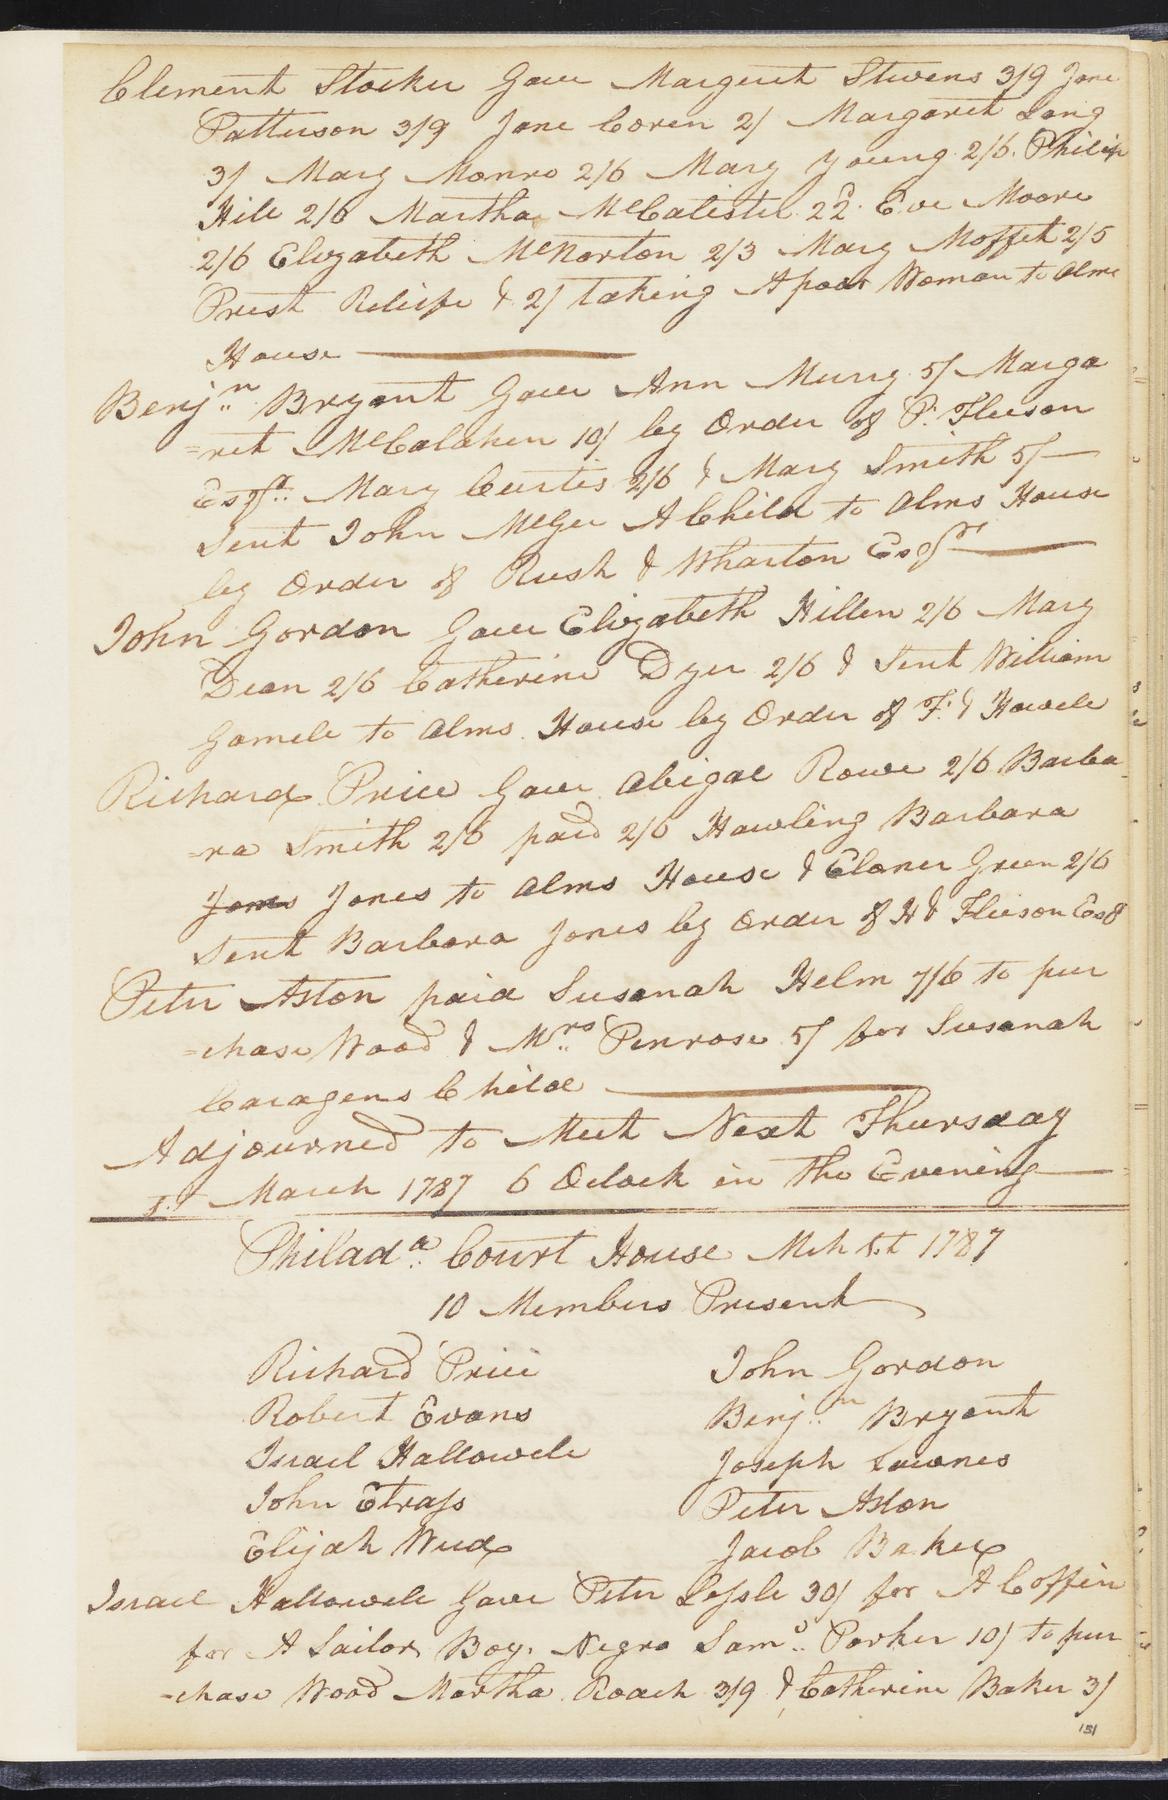 Clement Stocker Gave Margeret Stivens 3/9 Jane
Patterson 3/9 Jane Coren 2/ Margaret Long
3/ Mary Monro 2/6 Mary Young 2/6. Philip
Hill 2/6 Martha McCalister 22 Eve Moore
2/6 Elizabeth McNorton 2/3 Mary Moffet 2/5
Prest Reliefe & 2/ taking A poor Woman to Alms
House
Benjn. Bryant Gave Ann Murry 5/ Marga
=ret McCalahen 10/ by Order of P. Fleeson
Esqr. Mary Curtis 2/6 & Mary Smith 5/
Sent John McGee A Child to Alms House
by Order of Rush & Wharton Esqrs
John Gordon Gave Elizabeth Hillen 2/6 Mary
Dean 2/6 Catherine Dyer 2/6 & Sent William
Gamele to Alms House by Order of F. & Howele
Richard Price Gave Abigal Rowe 2/6 Barba
=ra Smith 2/6 paid 2/6 Hawling Barbara
Jones to Alms House & Elaner Green 2/6
Sent Barbara Jones by Order of H & Fleeson Esqr
Peter Aston paid Susanah Helm 7/6 to pur
=chase Wood & Mrs. Penrose 5/ for Susanah
Caragens Child
Adjourned to Meet Next Thursday
March 1787 6 Oclock in the Evening
Philada. Court House Mch 1st 1787
10 Members Present
Richard Price
Robert Evans
Israel Hallowele
John Strass
Elijah Weed
John Gordon
Benj.n Bryant
Joseph Lownes
Peter Aston
Jacob Baker
Israel Hallowele Gave Peter Lessle 30/ for A Coffin
for A Sailor Boy. Negro Saml. Parker 10/ to pur
=chase Wood Martha Roach 3/9 & Catherine Baker 3/
151